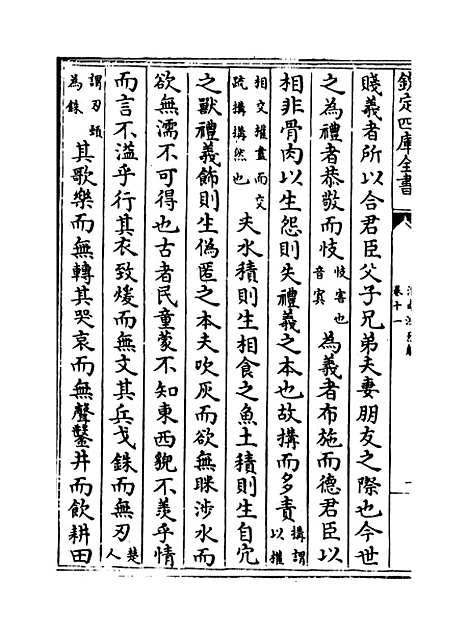 欽定四庫全書
卷十一
賤義者所以合君臣父子兄弟夫妻朋友之際也今世
之為禮者恭敬而忮忮害也音寘為義者布施而德君臣以
相非骨肉以生怨則失禮義之本也故搆而多責搆謂以權
相交權盡而交疏搆搆然也夫水積則生相食之魚土積則生自穴
之獸禮義飾則生偽匿之本夫吹灰而欲無眯涉水而
欲無濡不可得也古者民童蒙不知東西貌不羡乎情
而言不溢乎行其衣致煖而無文其兵戈銖而無刃楚人
謂刃頓為銖其歌樂而無轉其哭哀而無聲鑿井而飲耕田